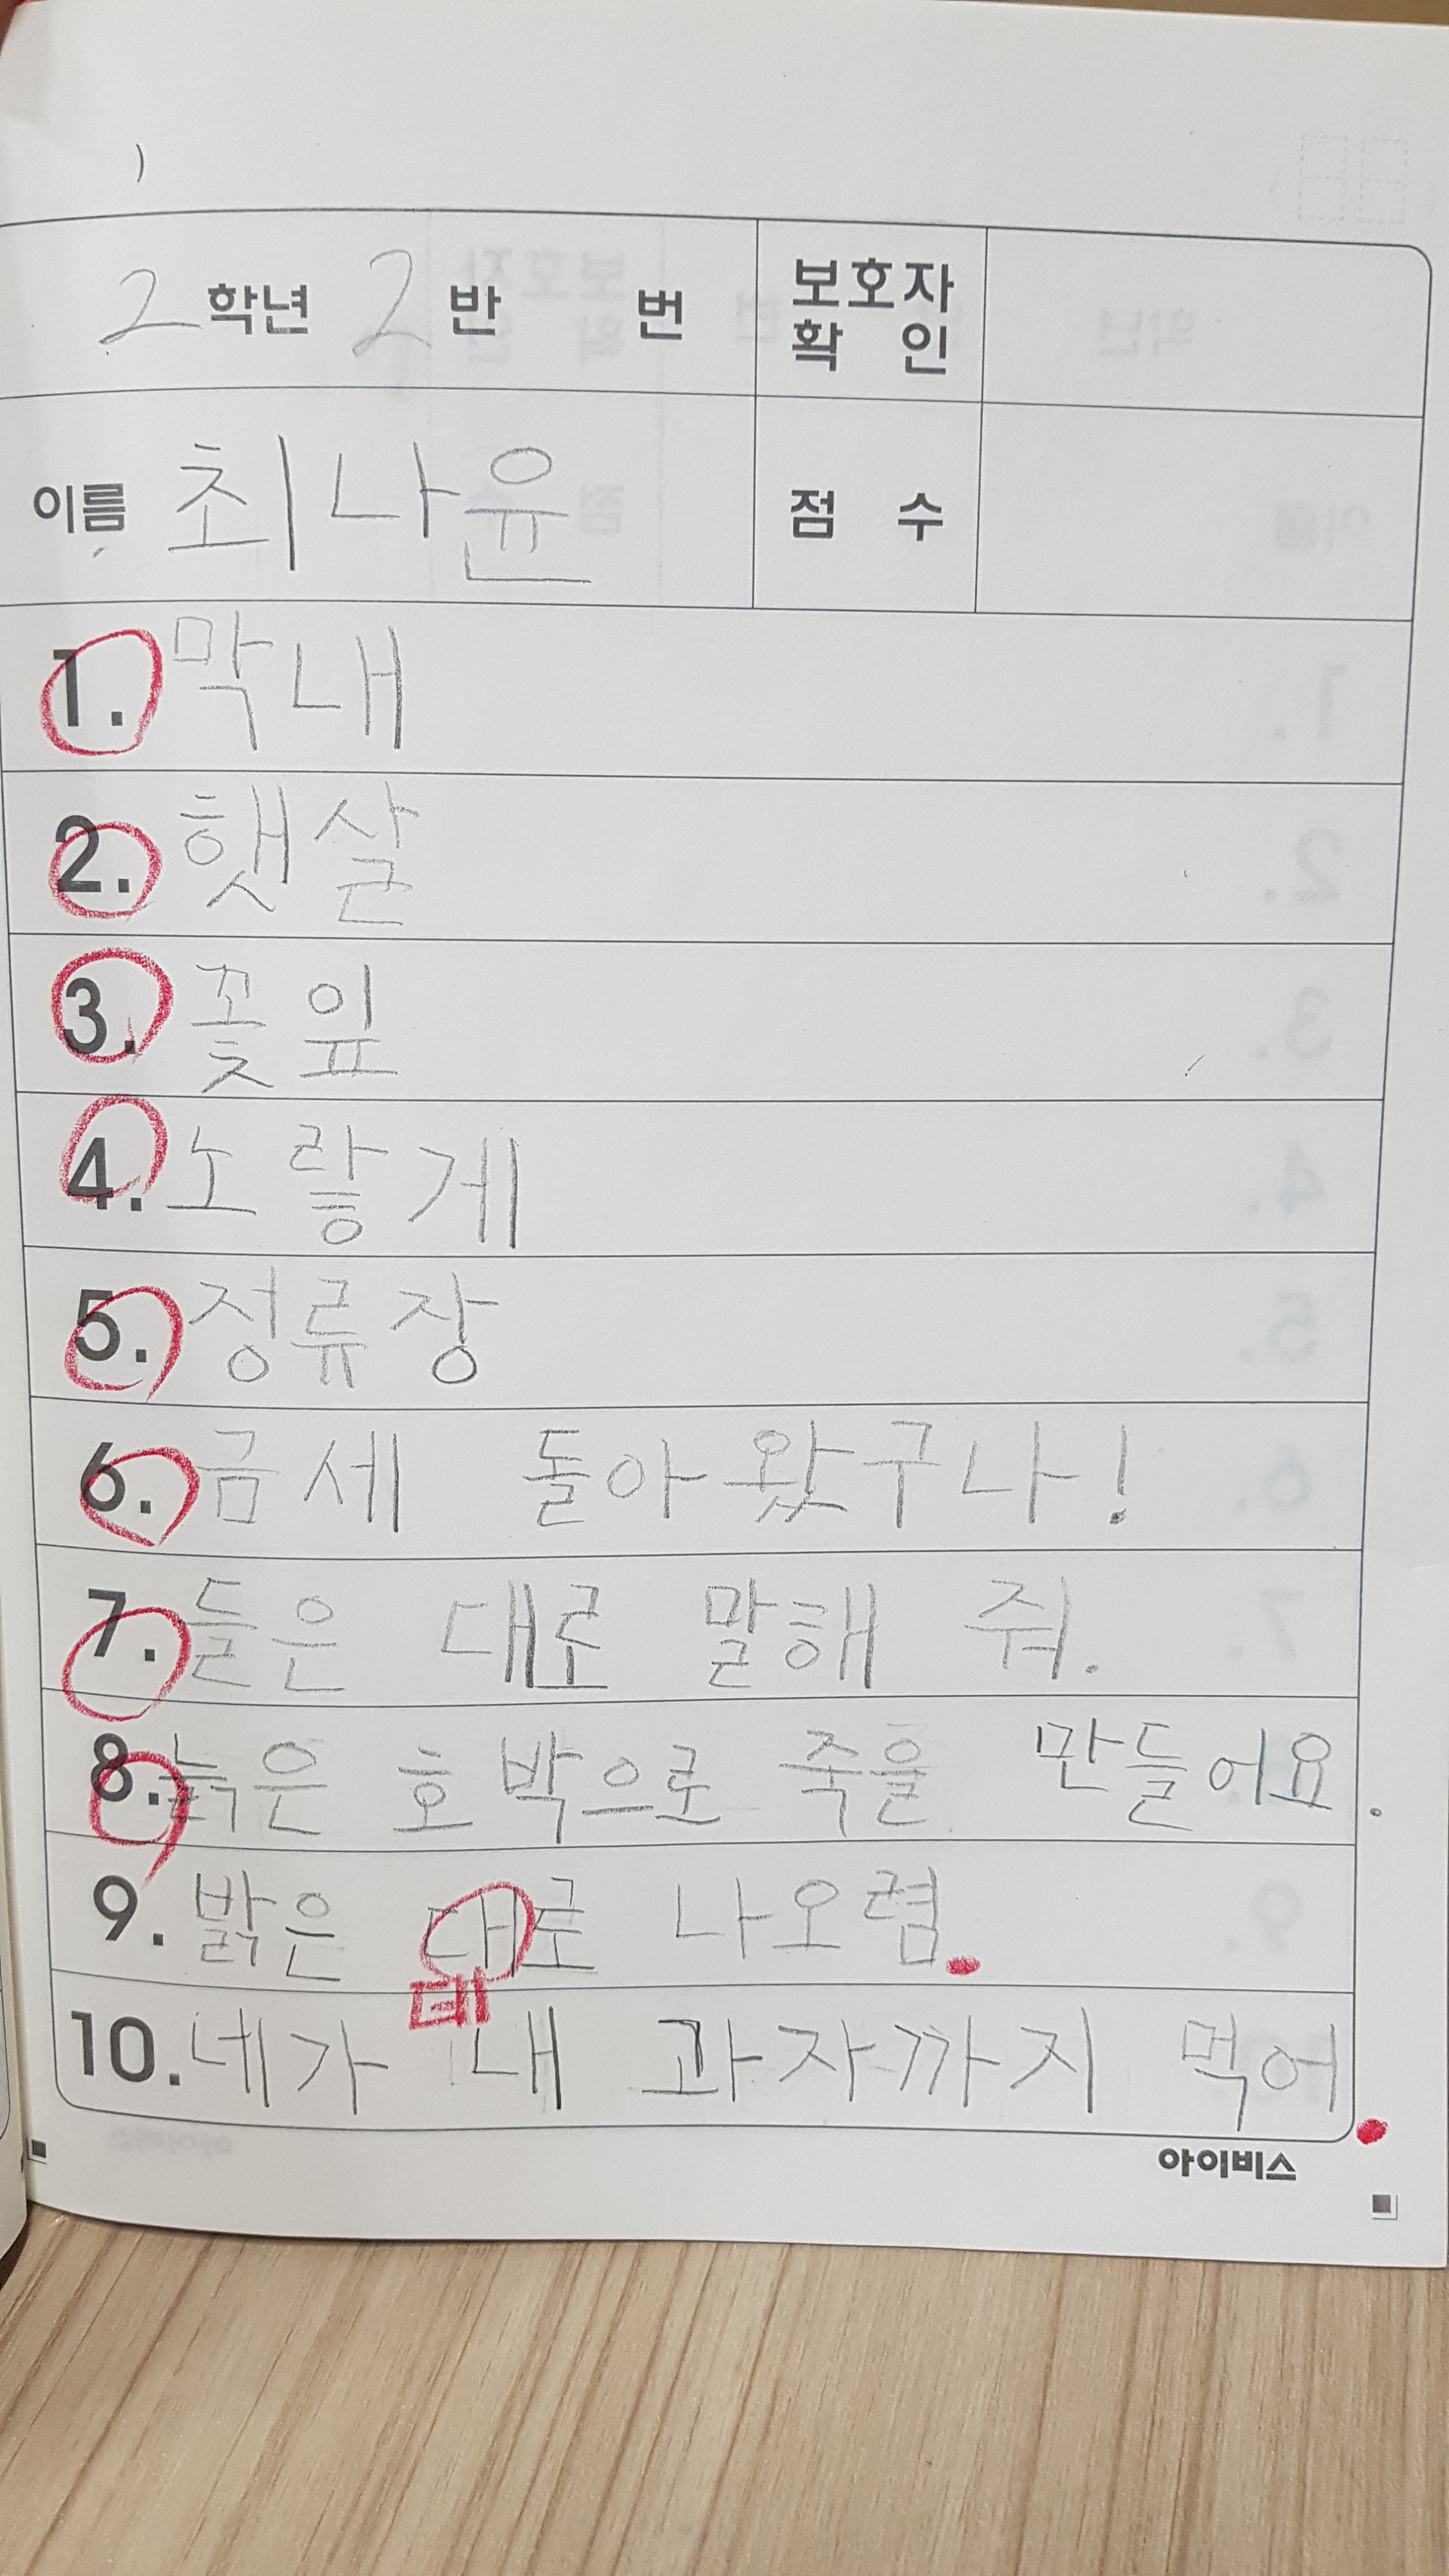 2 학년 2 반 번 보호자 확 인
이름 최나윤 점 수
1. 막내
2. 햇살
3. 꽃잎
4. 노랗게
5. 정류장
6. 금세 돌아왔구나!
7. 들은 대로 말해 줘.
8. 늙은 호박으로 죽을 만들어요.
9. 밝은 대로 나오렴.
데
10. 네가 내 과자까지 먹어.
아이비스